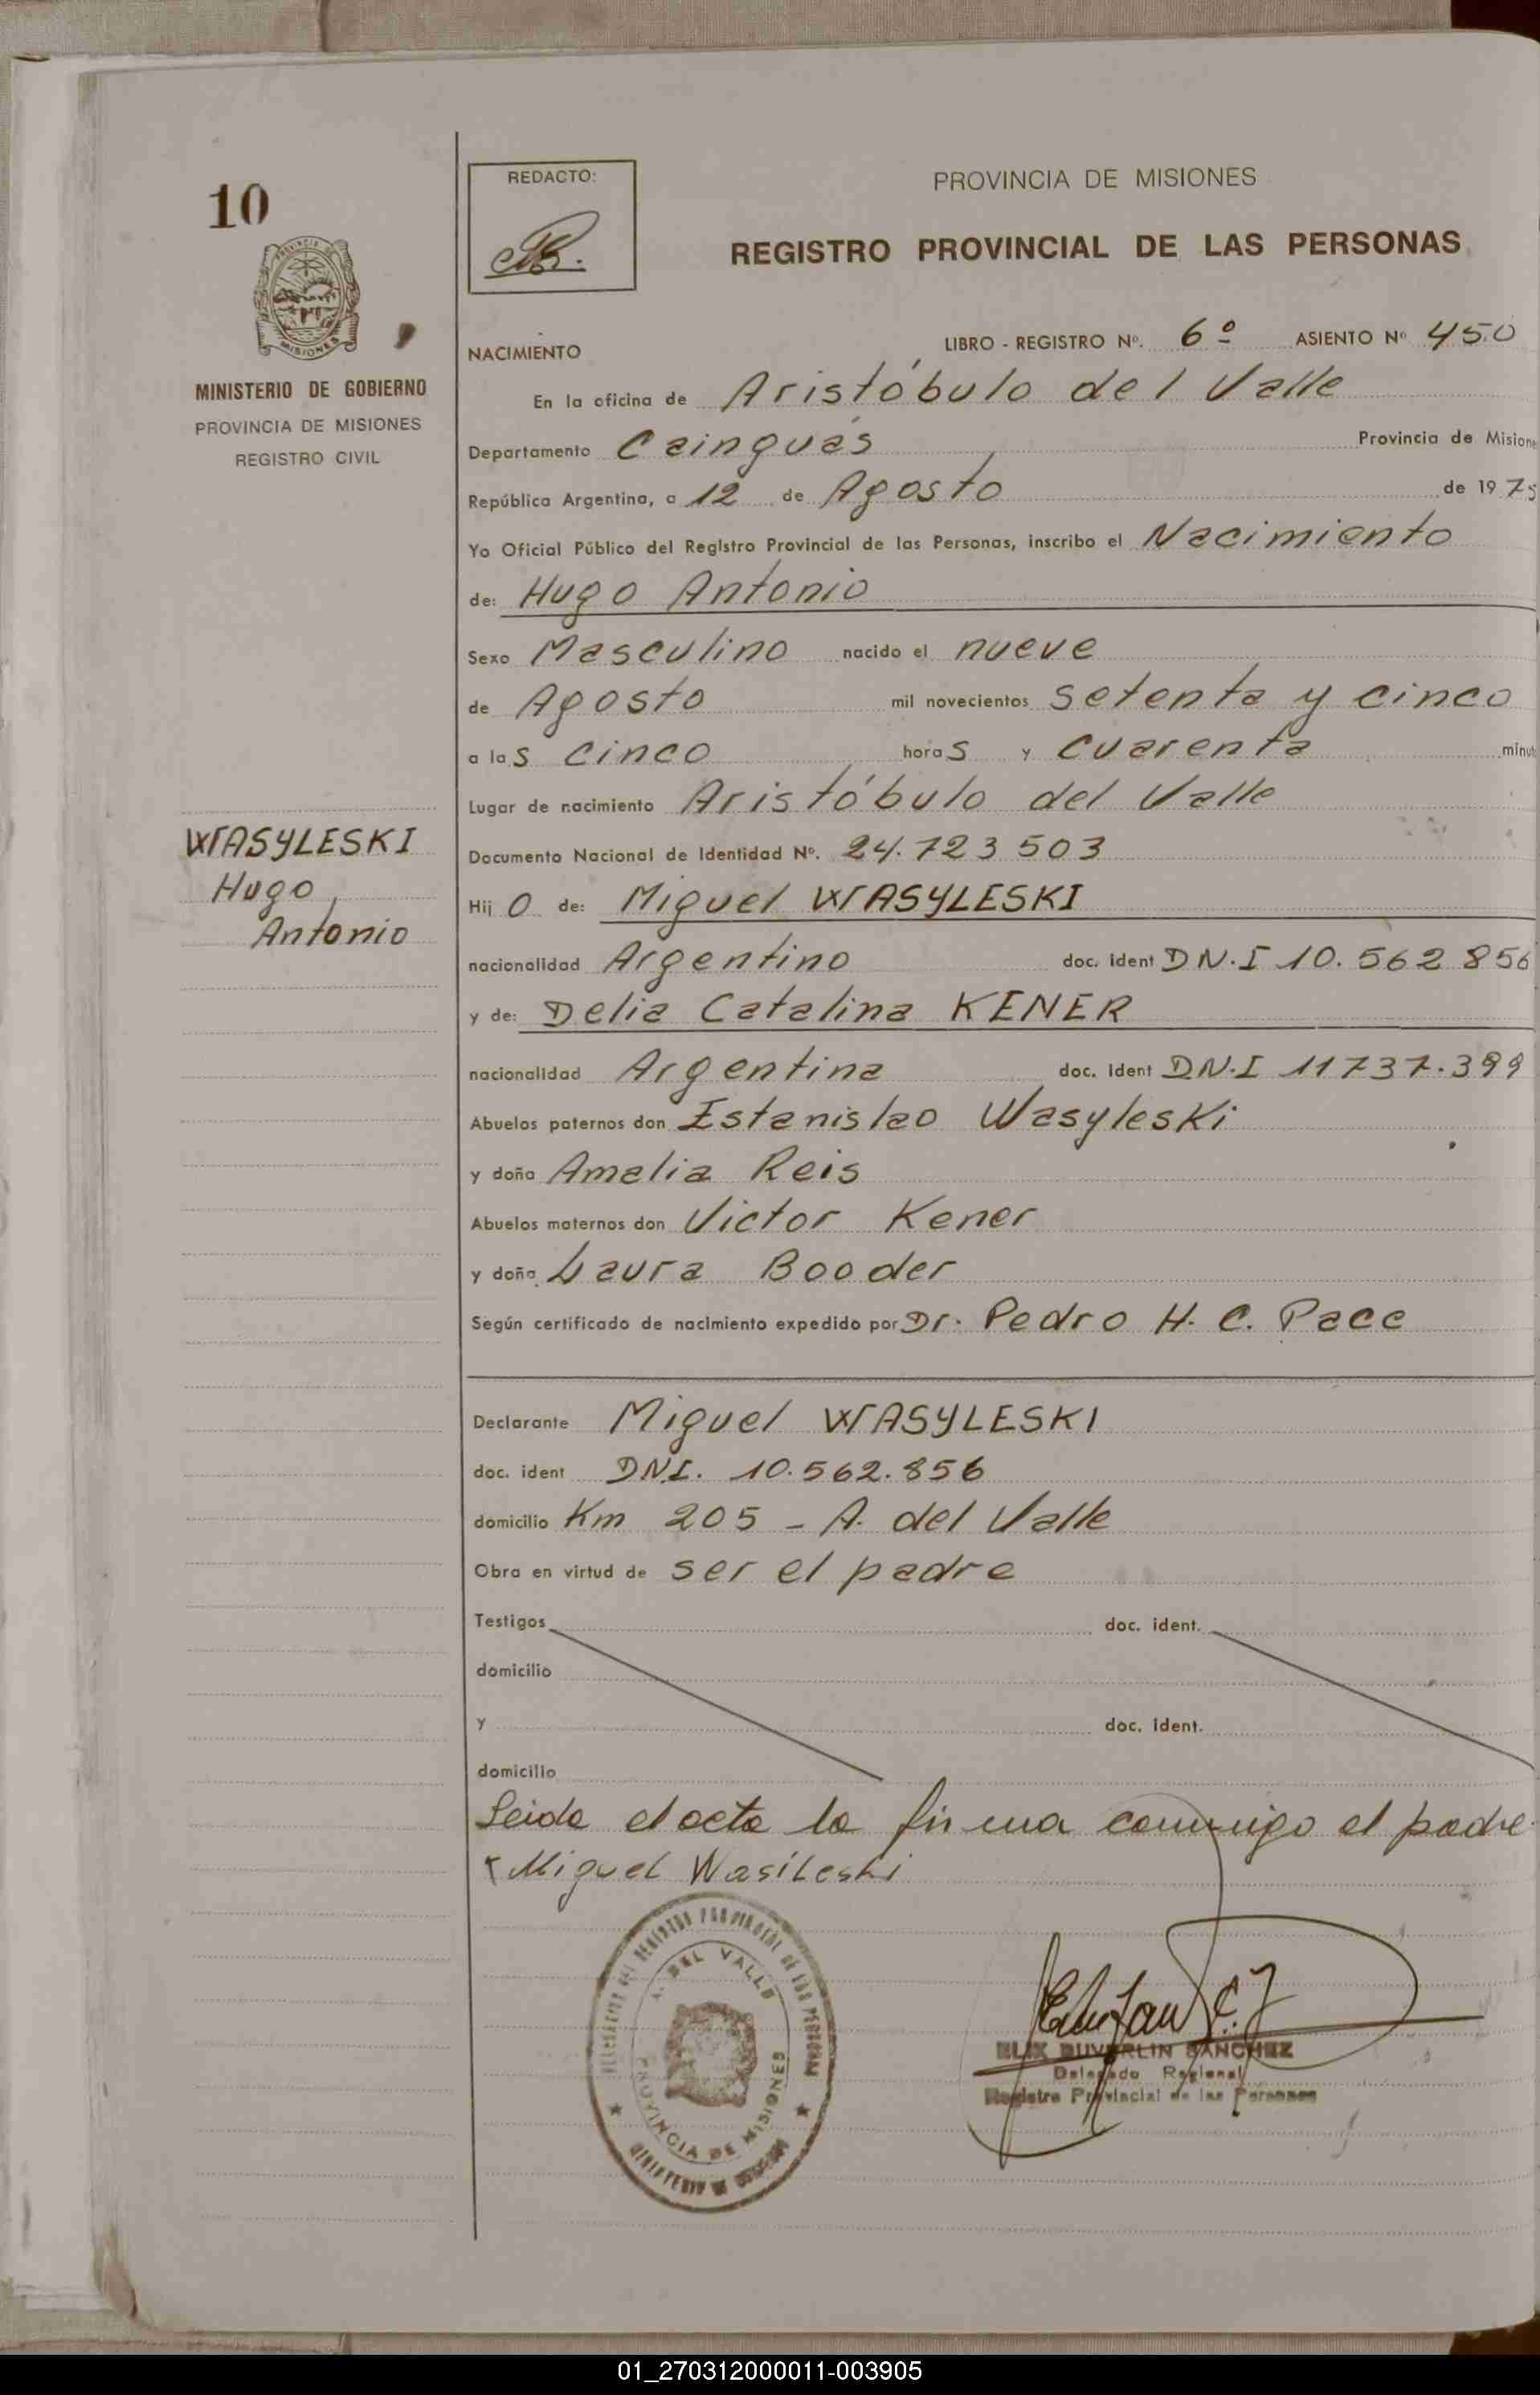 10
PROVINCIA DE MISIONES
MINISTERIO DE GOBIERNO
PROVINCIA DE MISIONES
REGISTRO CIVIL
WASYLESKI
Hugo
Antonio
REDACTO:
PROVINCIA DE MISIONES
REGISTRO PROVINCIAL DE LAS PERSONAS
NACIMIENTO LIBRO - REGISTRO Nº. 6º ASIENTO Nº 450
En la oficina de Aristóbulo del Valle
Departamento Cainguás Provincia de Misione
República Argentina, a 12 de Agosto de 1975
Yo Oficial Público del Registro Provincial de las Personas, inscribo el Nacimiento
de: Hugo Antonio
Sexo Masculino nacido el nueve
de Agosto mil novecientos setenta y cinco
a las cinco horas y cuarenta minut
Lugar de nacimiento Aristóbulo del Valle
Documento Nacional de Identidad Nº. 24.723503
Hijo de: Miguel WASYLESKI
nacionalidad Argentino doc. ident DN.I 10.562856
y de: Delia Catalina KENER
nacionalidad Argentina doc. ident DN.I 11737.399
Abuelos paternos don Estanislao Wasyleski
y doña Amalia Reis
Abuelos maternos don Victor Kener
y doña Laura Booder
Según certificado de nacimiento expedido por Dr. Pedro H. C. Pace
Declarante Miguel WASYLESKI
doc. ident DNI. 10.562.856
domicilio Km 205 - A. del Valle
Obra en virtud de ser el padre
Testigos doc. ident.
domicilio
y doc. ident.
domicilio
Leida el acta la firma conmigo el padre
Miguel Wasileski
DEL REGISTRO PROVINCIAL DE LAS PERSONAS
A. DEL VALLE
PROVINCIA DE MISIONES
MINISTERIO DE GOBIERNO
SANCHEZ
Delegado Regional
Registro Provincial de las Personas
01_270312000011-003905